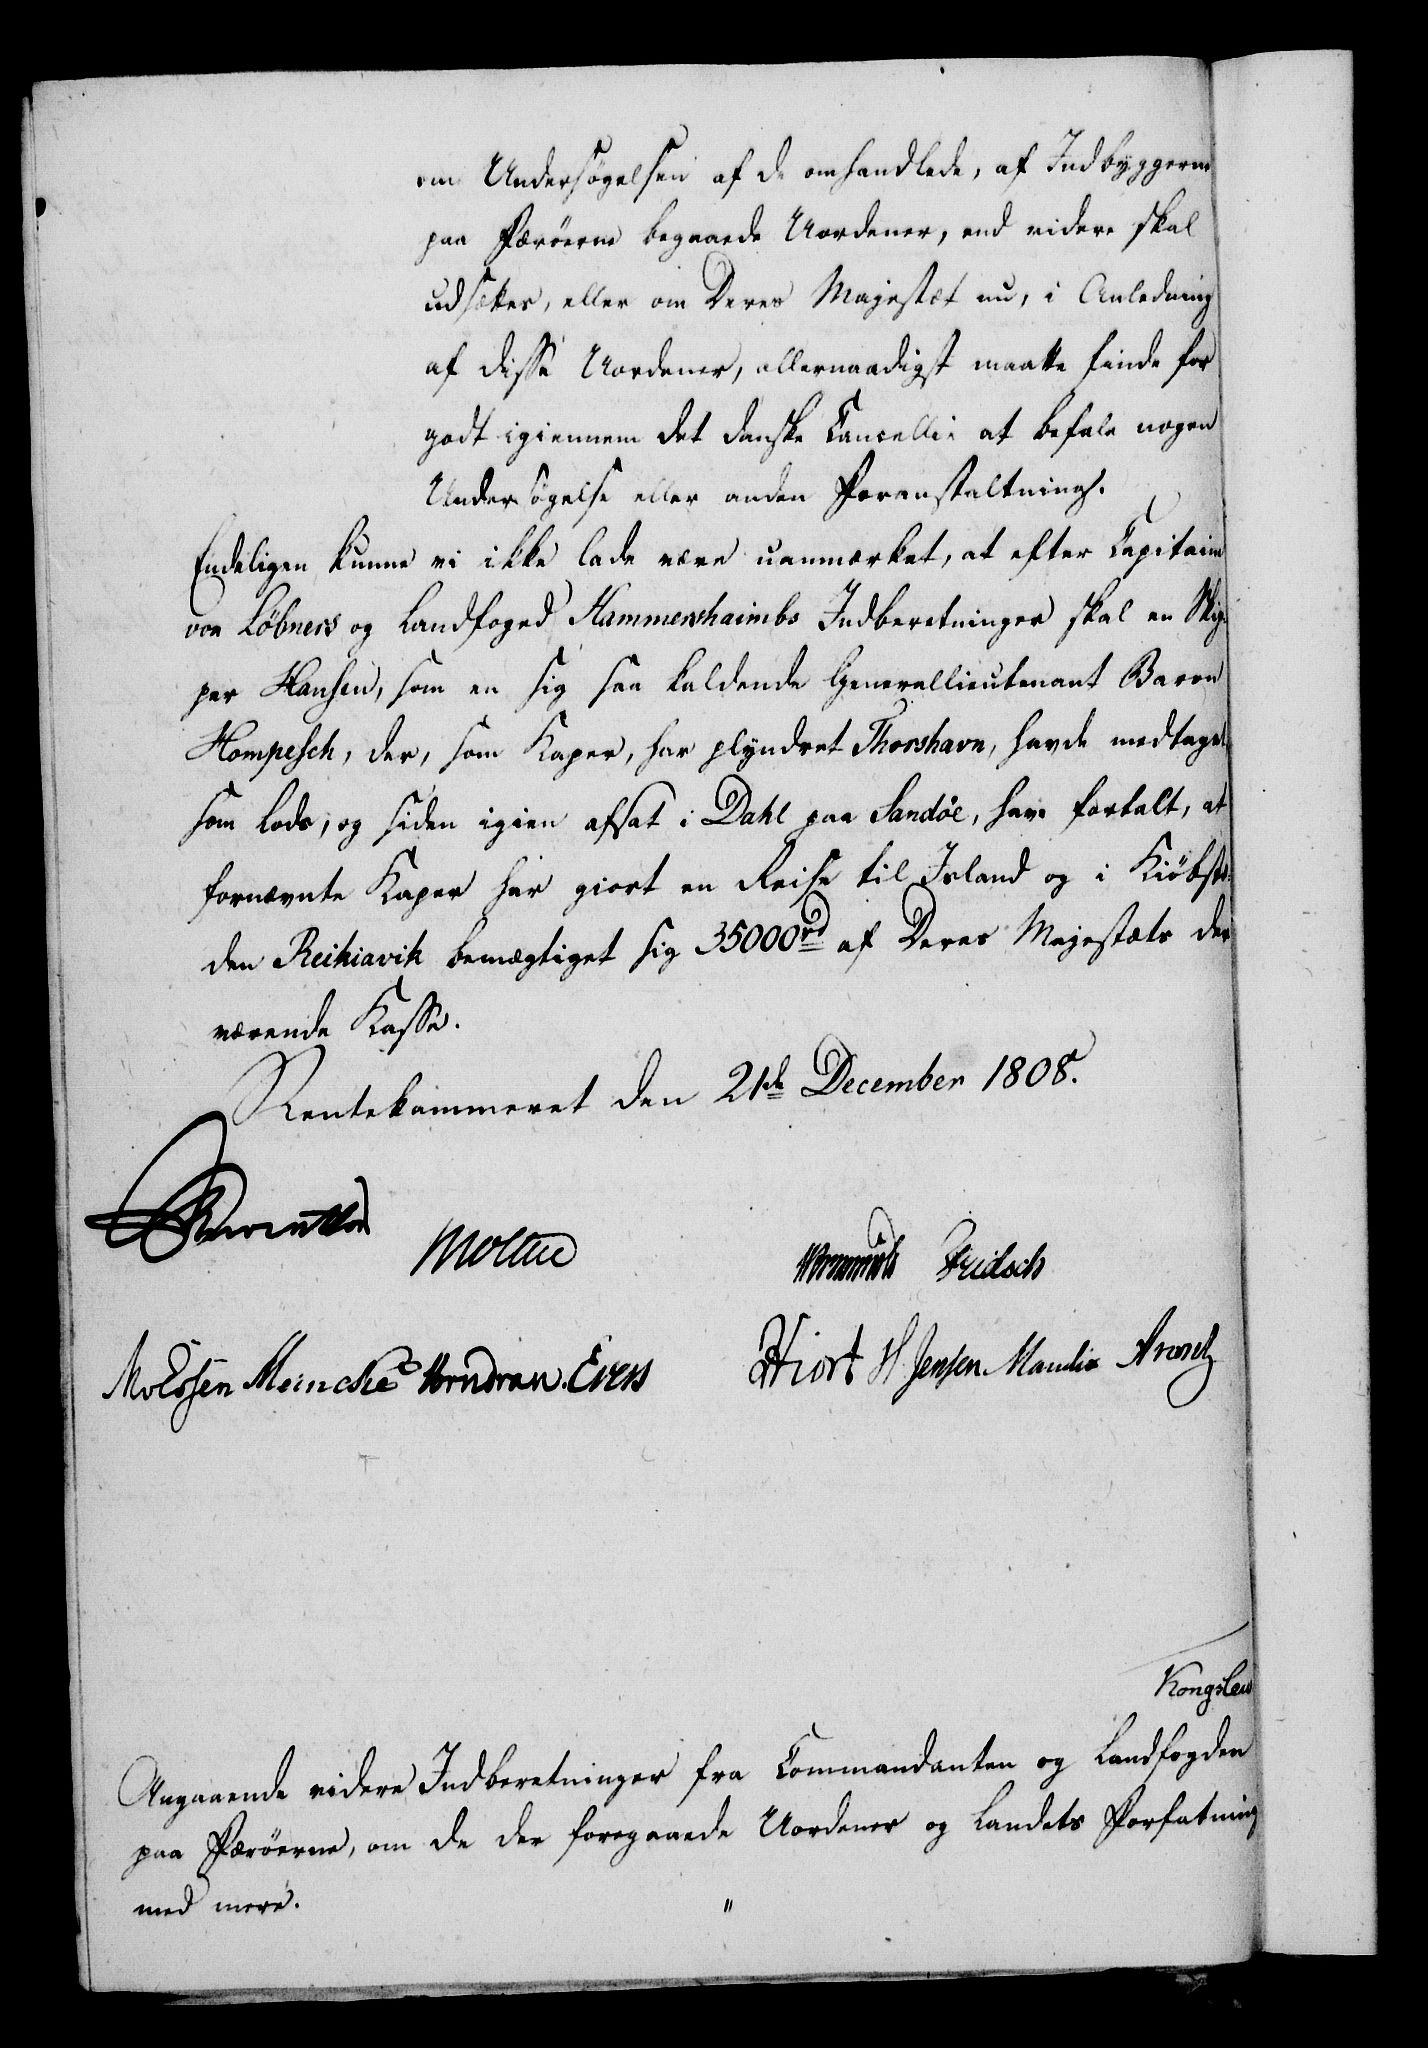 om Undersøgelsen af de omhandlede, af Indbyggerne
paa Færøerne begaaede Uordener, end videre skal
udsættes, eller om Deres Majestæt nu, i Anledning
af disse Uordener, allernaadigst maatte finde for
godt igiennem det danske Cancellie at befale nogen
Undersøgelse eller anden Foranstaltning.
Endeligen kunne vi ikke lade være uanmærket, at efter Capitain
von Løbners og Landfoged Hammershaimbs Indberetninger skal en Skip-
per Hansen, som en sig saa kaldende Generallieutenant Baron
Hompesch, der, som Kaper, har plyndret Thorshavn, havde medtaget
som Lods, og siden igien afsat i Dahl paa Sandøe, have fortalt, at
fornævnte Kaper har giort en Reise til Island og i Kiøbsta-
den Reikiavik bemægtiget sig 35000 rd af Deres Majestæts der
værende Kasse.
Rentekammeret den 21de December 1808.
Reventlow
Moltke
Wormskiold Fridsch
Molssen Meincke Wendrau. Evers
Hiort H Jensen Mandix Arentz
Kongslew
Angaaende videre Indberetninger fra Commandanten og Landfogden
paa Færøerne, om de der foregaaede Uordener og Landets Forfatning
med mere.
"